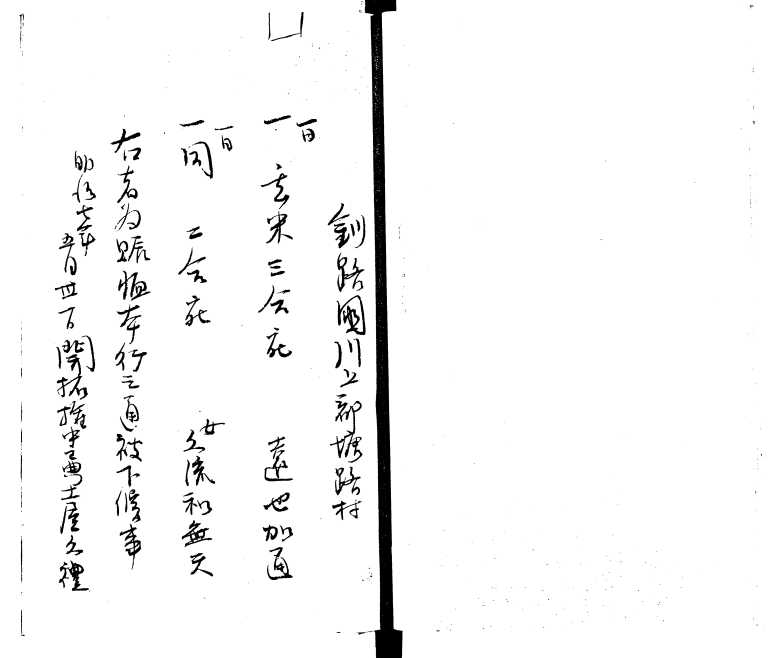 釧路國川上郡塘路村
一日
一玄米三合宛 遠也加通
一日
一同 二合宛 女久流和無天
右者為賑恤本行之通被下候事
明治七年
五月卅一日開拓権中主典土屋久禮